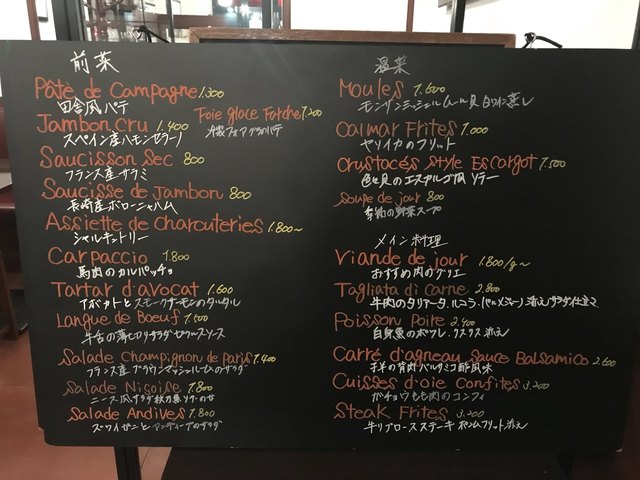 前菜
Pâté de Campagne 1.300
田舎風パテ
Foie glace Torche 1.200
冷製フォアグラのパテ
Jambon cru 1.400
スペイン産ハモンセラーノ
Saucisson Sec 800
フランス産サラミ
Saucisse de Jambon 800
長崎産ボローニャハム
Assiette de Charcuteries 1.800~
シャルキュトリー
Carpaccio 1.800
馬肉のカルパッチョ
Tartar d'avocat 1.600
アボカドとスモークサーモンのタルタル
Langue de Boeuf 1.500
牛舌の薄切りサラダ
Salade Champignon de Paris 1.400
フランス産ブラウンマッシュルームのサラダ
Salade Niçoise 1.800
ニース風サラダ
Salade Andives 1.800
ズワイガニとアンディーブのサラダ
温菜
Moules 1.600
モンサンミッシェルムール貝白ワイン蒸し
Calmar Frites 1.000
ヤリイカのフリット
Crustacés Style Escargot 1.500
Soupe de jour 800
季節の野菜スープ
メイン料理
Viande de jour 1.800/g~
おすすめ肉のグリエ
Tagliata di carne 2.800
牛肉のタリアータ、ルコラ、パルメジャーノ添えサラダ仕立て
Poisson Poire 2.400
白身魚のポワレ クスクス添え
Carré d'agneau Sauce Balsamico 2.600
羊の背肉バルサミコ酢風味
Cuisses d'oie Confites 3.200
ガチョウもも肉のコンフィ
Steak Frites 3.200
牛リブロースステーキ ポムフリット添え